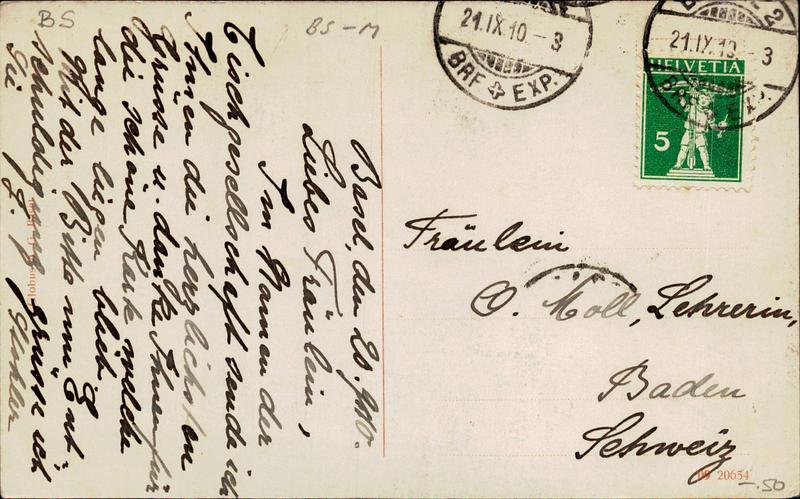 BS
BS-M
21.IX.10 - 3
BRF EXP.
21.IX.10 3
BRF EXP.
HELVETIA
5
Basel, den 20. 9.10.
Liebes Fräulein,
Im Namen der
Tischgesellschaft sende ich
Ihnen die herzlichsten
Grüsse u. danke Ihnen für
die schöne Karte welche
lange liegen blieb.
Mit der Bitte um Ent-
schuldigung grüsse ich
Sie
Fräulein
O. Moll, Lehrerin,
Baden
Schweiz
09 20654
-.50